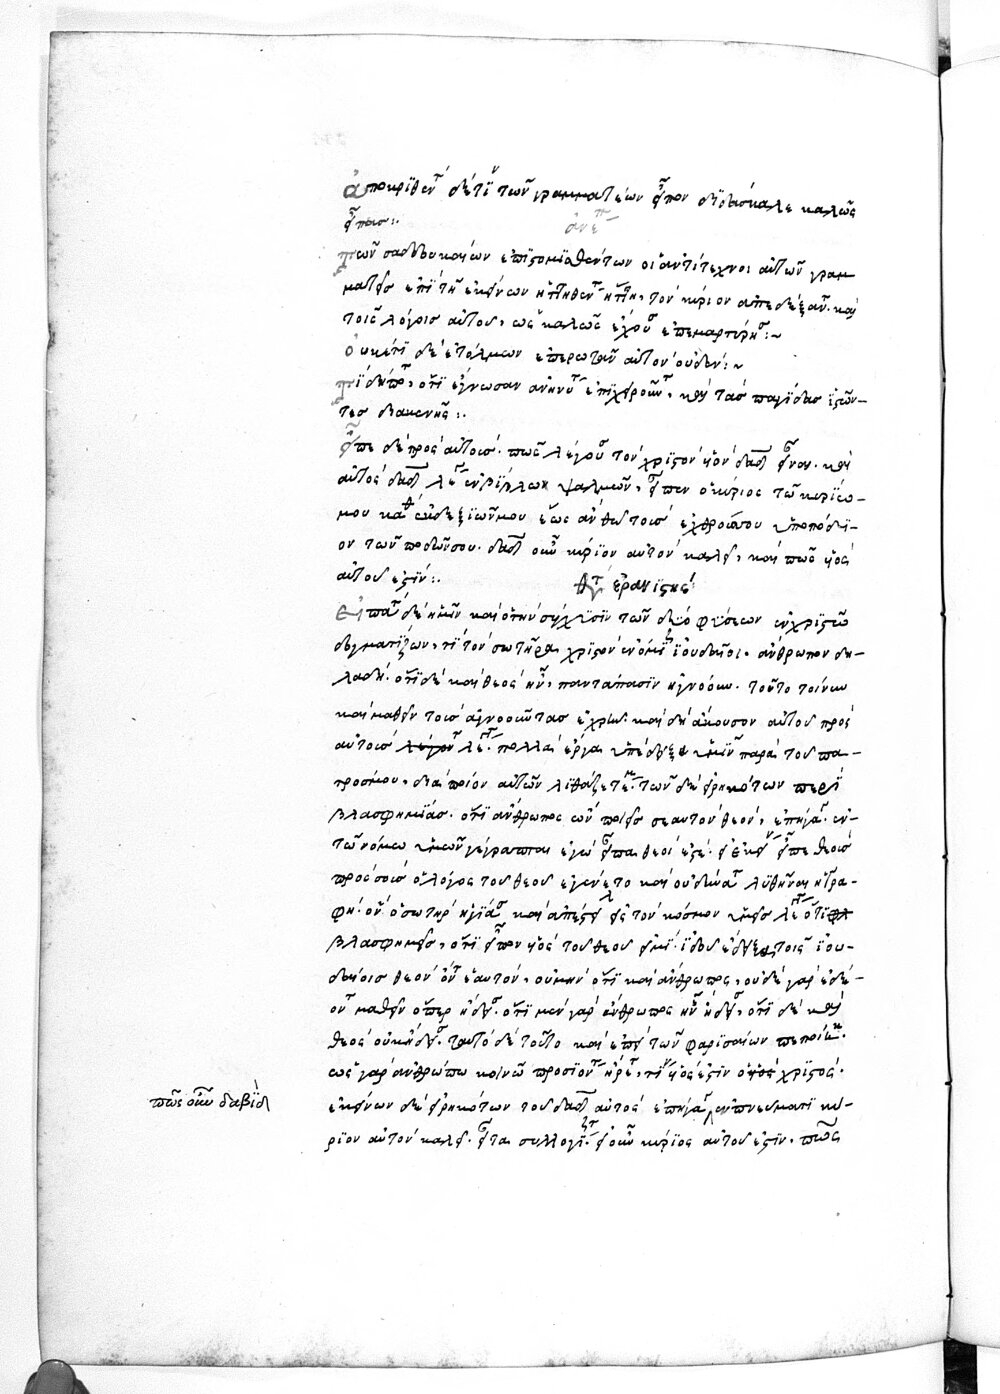 ἀποκριθέντ δέ τινὲ τῶν γραμματέων εἶπον διδάσκαλε καλῶς
εἶπας:
ἀνεπ
τῶν σαδδουκαίων ἐπιστομισθέντων οἱ ἀντίτεχνοι αὐτῶν γραμ
ματεῖς ἐπὶ τῇ ἐκείνων ἡττηθέντ ἥττῃ, τὸν κύριον ἀπεδέξαντο. καὶ
τοῖς λόγοις αὐτοῦ, ὡς καλῶς ἔχουσ ἐπεμαρτύρησ:~
οὐκέτι δὲ ἐτόλμων ἐπερωτᾶν αὐτὸν οὐδέν:~
ὅτι ἔγνωσαν ἀνήνυτ ἐπιχειροῦντ, καὶ τὰς παγίδας ἱστῶν-
τες διακενῆς:
εἶπε δὲ πρὸς αὐτούς. πῶς λέγουσ τὸν χριστὸν υἱὸν δαδ εἶναι. καὶ
αὐτὸς δαδ λέγ ἐν βίβλω ψαλμῶν, εἶπεν ὁ κύριος τῶ κυρίω
μου κάθου ἐκ δεξιῶν μου ἕως ἂν θῶ τοὺς ἐχθρούς σου ὑποπόδι-
ον τῶν ποδῶν σου. δαδ οὖν κύριον αὐτὸν καλεῖ, καὶ πῶς υἱὸς
αὐτοῦ ἐστίν:
ἐρανιστής
εἰπὲ δὲ ἡμῖν καὶ ὁ τὴν σύγχυσιν τῶν δύο φύσεων ἐν χριστῶ
δογματίζων, τί τὸν σωτῆρα χριστὸν ἐνόμι ἰουδαῖοι. ἄνθρωπον δη-
λαδή. ὅτι δὲ καὶ θεὸς ἦν, παντάπασιν ἠγνόουν. τοῦτο τοίνυν
καὶ μαθεῖν τοὺς ἀγνοοῦντας ἐχρῆν. καὶ δὴ ἄκουσον αὐτοῦ πρὸς
αὐτοὺς λέγοντ λέγ. πολλὰ ἔργα ὑπέδειξα ὑμῖν παρὰ τοῦ πα-
προσμου. διὰ ποῖον αὐτῶν λιθάζετέ με. τῶν δὲ εἰρηκότων περὶ
βλασφημίας. ὅτι ἄνθρωπος ὢν ποιεῖς σεαυτὸν θεόν, ἐπήγα. ἐν
τῶ νόμω ὑμῶν γέγραπται ἐγὼ εἶπα θεοί ἐστέ. εἰ ἐκείν εἶπε θεοὺς
πρὸς οὓς ὁ λόγος τοῦ θεοῦ ἐγένετο καὶ οὐ δύνα λυθῆναι ἡ γρα-
φή. ὃν ὁ σωτὴρ ἡγία καὶ ἀπέστ εἰς τὸν κόσμον ὑμεῖς λέγ ὅτι
βλασφημεῖς, ὅτι εἶπον υἱὸς τοῦ θεοῦ εἰμί. ἰδοὺ ἔδειξε τοῖς ἰου-
δαίοις θεὸν ὄντ ἑαυτόν, οὐ μὴν ὅτι καὶ ἄνθρωπος, οὐδὲ γὰρ ἐδέ-
οντ μαθεῖν ὅπερ ᾔδεισ. ὅτι μὲν γὰρ ἄνθρωπος ἦν ᾔδεισ, ὅτι δὲ καὶ
θεὸς οὐκ ᾔδεισ. ταυτὸ δὲ τοῦτο καὶ ἐπὶ τῶν φαρισαίων πεποίηκ.
ὡς γὰρ ἀνθρώπω κοινῶ προσιόντ ἤρετ, τίν υἱός ἐστιν ὁ χριστός.
ἐκείνων δὲ εἰρηκότων τοῦ δαδ αὐτὸς ἐπήγα, ἐν πνεύματι κύ-
ριον αὐτὸν καλεῖ. εἶτα συλλογίζετ. εἰ οὖν κύριος αὐτοῦ ἐστιν. πῶς
πῶς οὖν δαβὶδ